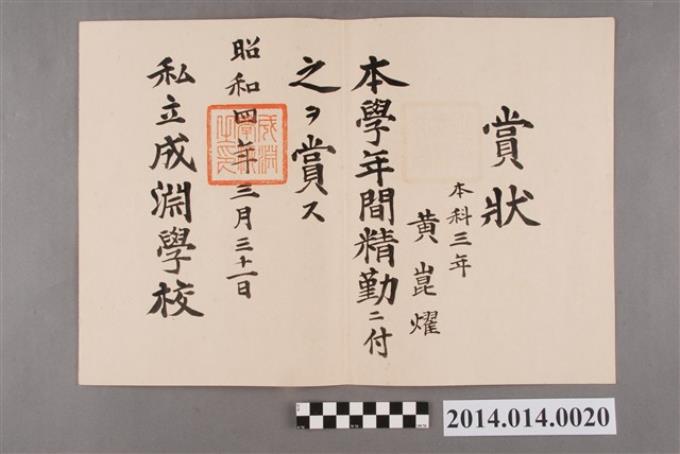 賞狀
本科三年
黃崑燿
本學年間精勤ニ付
之ヲ賞ス
昭和四年三月三十一日
私立成淵學校
2014.014.0020